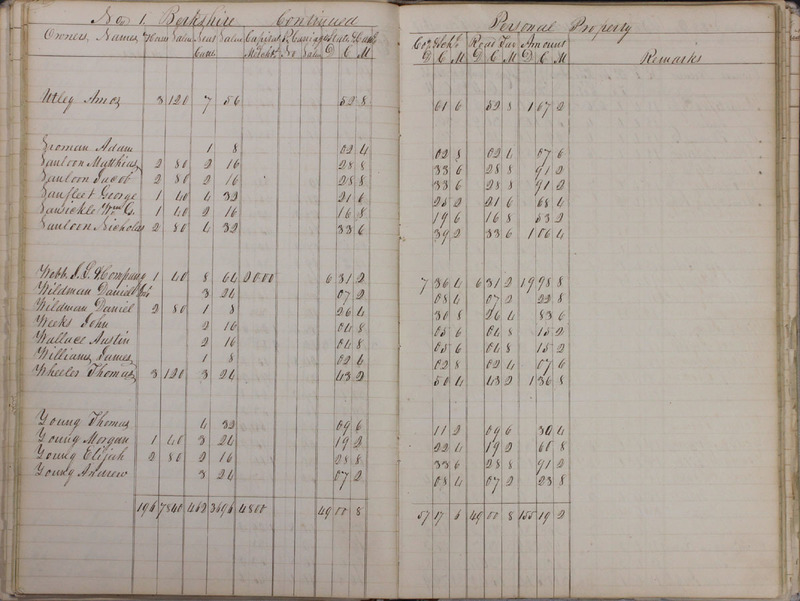 No 1 Berkshire Continued Personal Property
Owners Names Horses Value Neat Cattle Value Capital Mcht. P. Carriages No Value State & Canal D C M Coy & Schl. D C M Road Tax D C M Amount D C M Remarks
Utley Amos 3 120 7 56 52 8 61 6 52 8 1 67 2
Vroman Adam 1 8 02 4 02 8 02 4 07 6
Vanloon Matthias 2 80 2 16 28 8 33 6 28 8 91 2
Vanloon Jacob 2 80 2 16 28 8 33 6 28 8 91 2
Vanfleet George 1 40 4 32 21 6 25 2 21 6 68 4
Vansickle Wm G. 1 40 2 16 16 8 19 6 16 8 53 2
Vanloon Nicholas 2 80 4 32 33 6 39 2 33 6 1 06 4
Webb J. L. & Company 1 40 8 64 2000 6 31 2 7 36 4 6 31 2 19 98 8
Wildman Daniel 3 24 07 2 08 4 07 2 22 8
Wildman Daniel 2 80 1 8 26 4 30 8 26 4 83 6
Weeks John 2 16 04 8 05 6 04 8 15 2
Wallace Austin 2 16 04 8 05 6 04 8 15 2
Williams James 1 8 02 4 02 8 02 4 07 6
Wheeler Thomas 3 120 3 24 43 2 50 4 43 2 1 36 8
Young Thomas 4 32 09 6 11 2 09 6 30 4
Young Morgan 1 40 3 24 19 2 22 4 19 2 60 8
Young Elijah 2 80 2 16 28 8 33 6 28 8 91 2
Young Andrew 3 24 07 2 08 4 07 2 23 8
196 7840 462 3696 4800 49 00 8 57 17 6 49 00 8 155 19 2